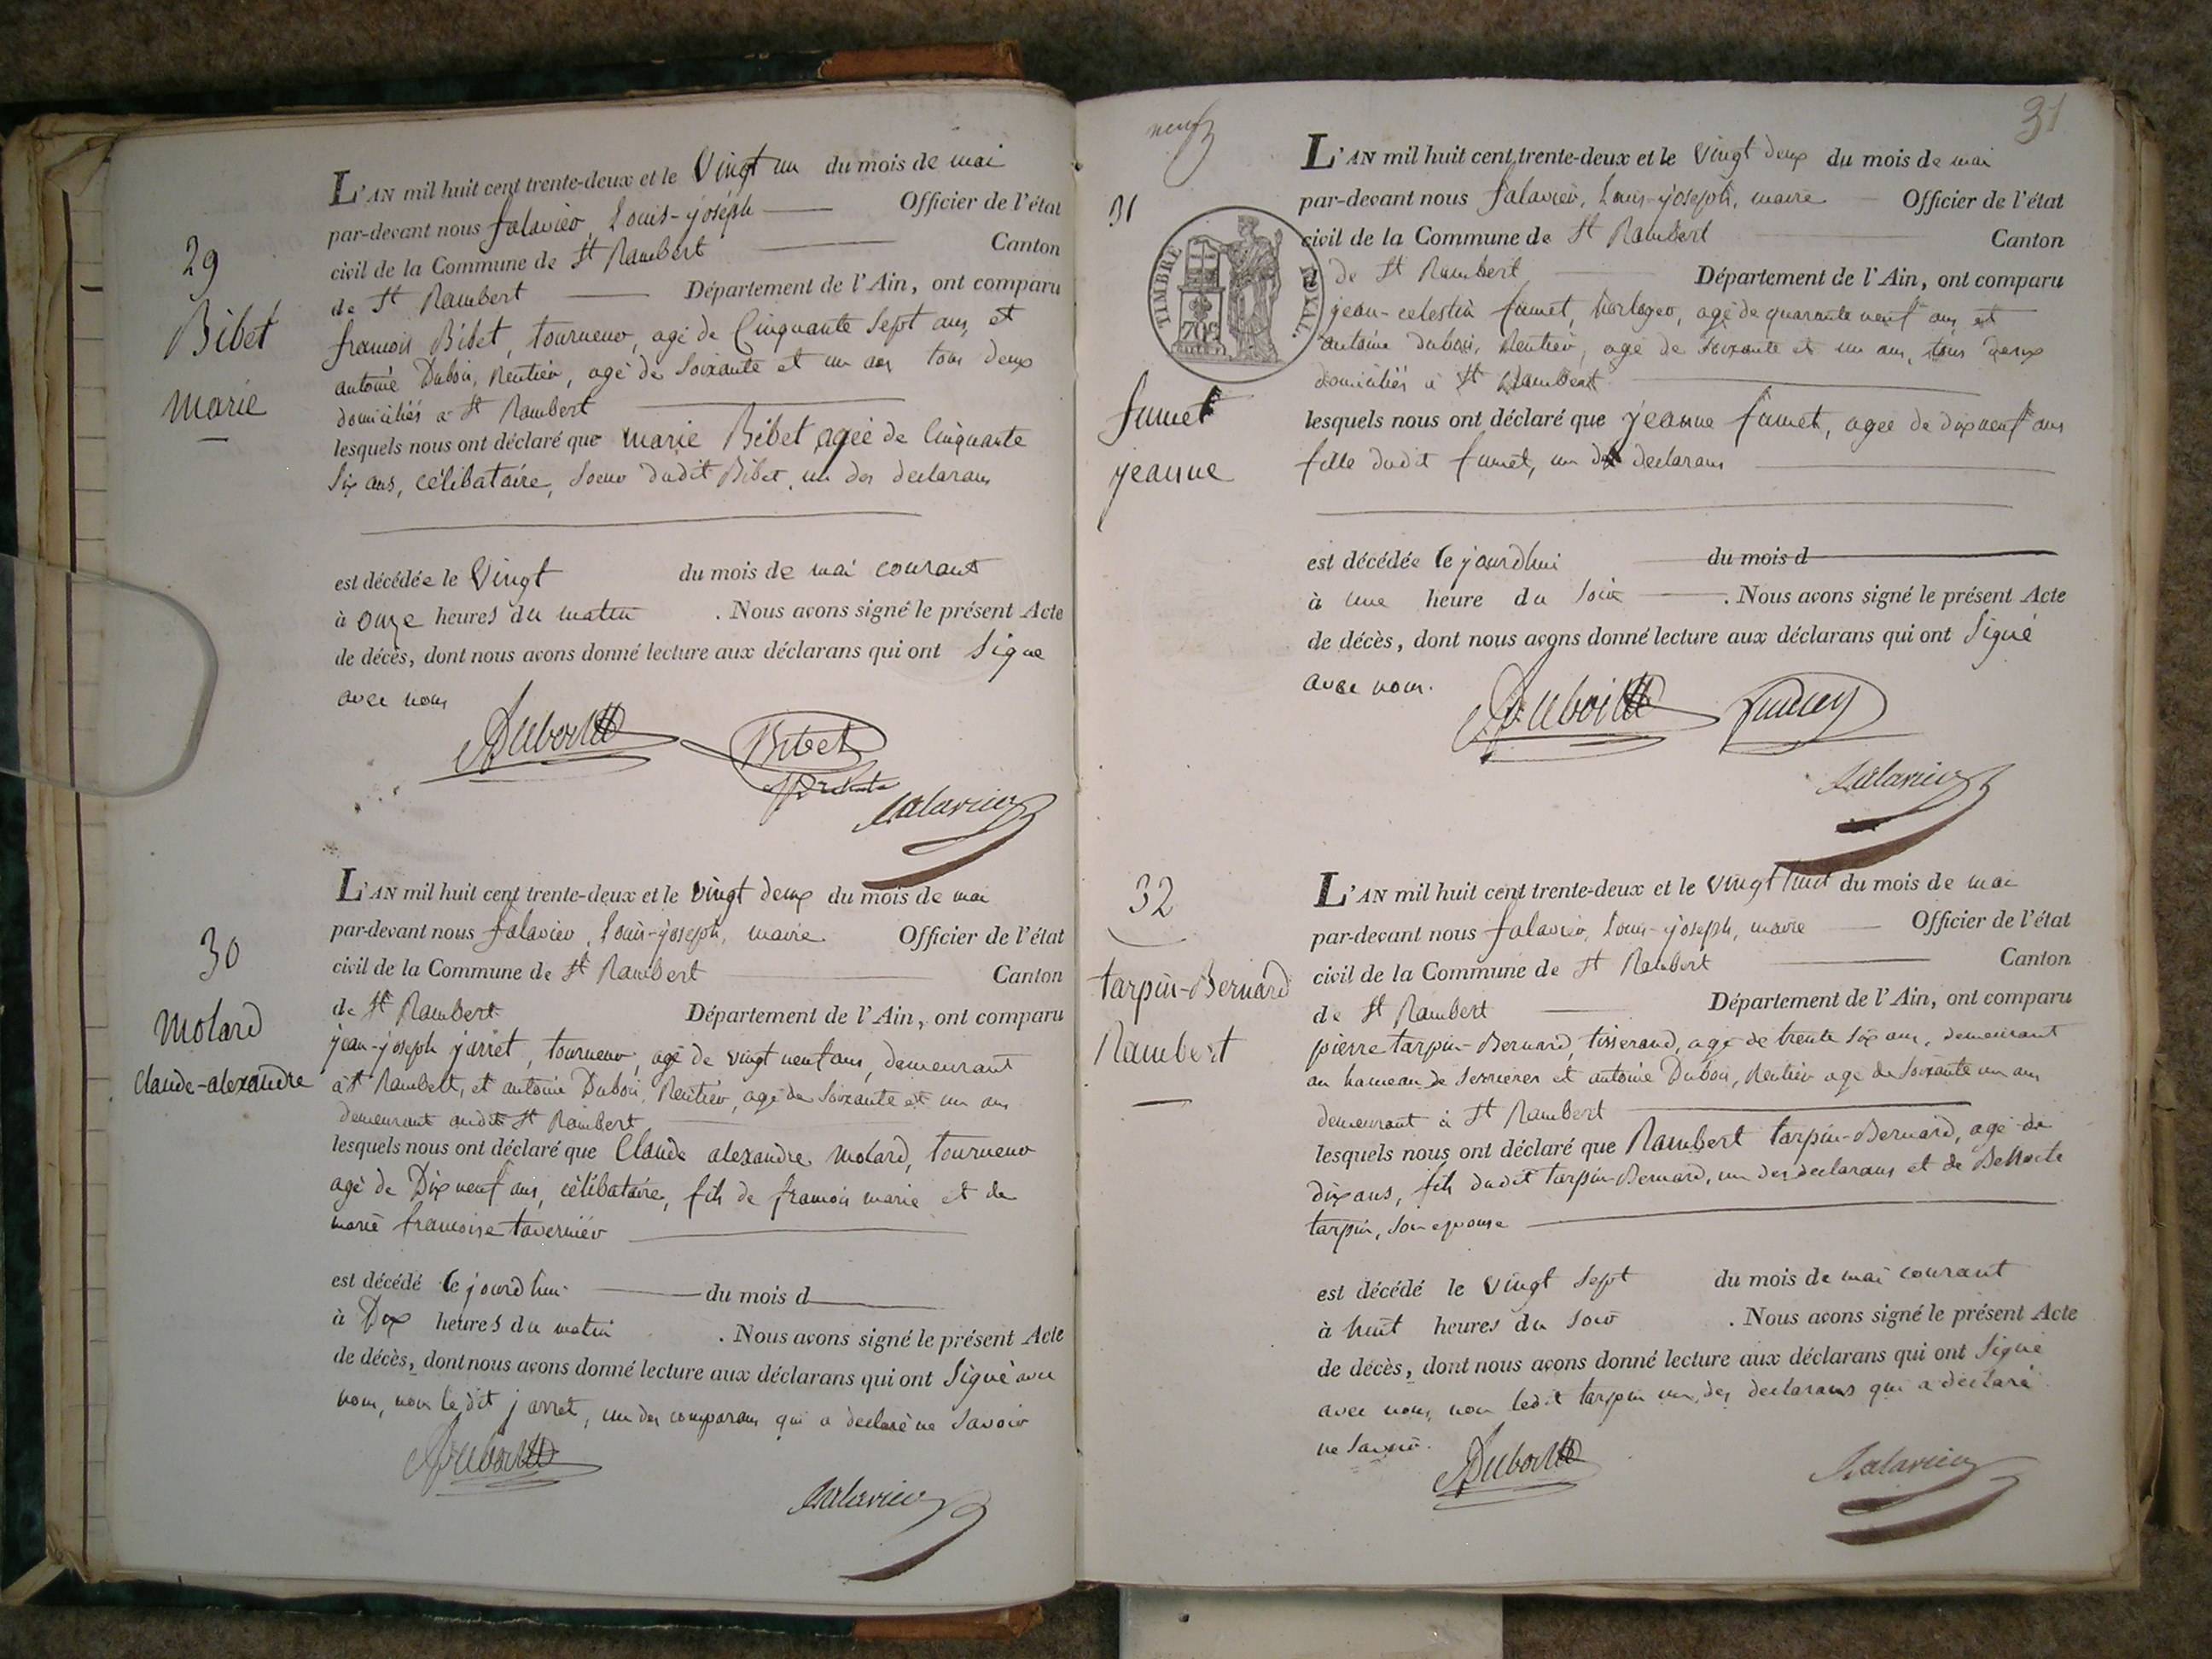 29
Bibet
marie
L'AN mil huit cent trente-deux et le Vingt un du mois de mai
par-devant nous falavier, Louis-joseph Officier de l'état
civil de la Commune de St Rambert Canton
de St Rambert Département de l'Ain, ont comparu
francois Bibet, tourneur, agé de Cinquante Sept ans, et
antoine Dubois, Rentier, agé de Soixante et un ans tous deux
domiciliés à St Rambert
lesquels nous ont déclaré que marie Bibet agée de Cinquante
Six ans, célibataire, Soeur dudit Bibet, un des declarans
est décédée le Vingt du mois de mai courant
à onze heures du matin . Nous avons signé le présent Acte
de décès, dont nous avons donné lecture aux déclarans qui ont Signé
avec nous
Dubois
Bibet
falavier
30
Molard
Claude-alexandre
L'AN mil huit cent trente-deux et le vingt deux du mois de mai
par-devant nous falavier, Louis-joseph, maire Officier de l'état
civil de la Commune de St Rambert Canton
de St Rambert Département de l'Ain, ont comparu
jean-joseph jarret, tourneur, agé de vingt neuf ans, demeurant
à St Rambert, et antoine Dubois, Rentier, agé de Soixante et un ans
demeurant audit St Rambert
lesquels nous ont déclaré que Claude alexandre Molard, tourneur
agé de Dix neuf ans, célibataire, fils de francois marie et de
marie francoise tavernier
est décédé le jourdhui du mois d
à Dix heures du matin . Nous avons signé le présent Acte
de décès, dont nous avons donné lecture aux déclarans qui ont Signé avec
nous, non le dit jarret, un des comparans qui a declaré ne Savoir
Dubois
falavier
neuf
31
31
TIMBRE ROYAL
70c
fumet
jeanne
L'AN mil huit cent trente-deux et le Vingt deux du mois de mai
par-devant nous falavier, Louis-joseph, maire Officier de l'état
civil de la Commune de St Rambert Canton
de St Rambert Département de l'Ain, ont comparu
jean-celestin fumet, horloger, agé de quarante neuf ans et
antoine dubois, Rentier, agé de Soixante et un ans, tous deux
domiciliés à St Rambert
lesquels nous ont déclaré que jeanne fumet, agée de dix neuf ans
fille dudit fumet, un des declarans
est décédée le jourdhui du mois d
à une heure du Soir . Nous avons signé le présent Acte
de décès, dont nous avons donné lecture aux déclarans qui ont Signé
avec nous.
Dubois
fumey
falavier
32
tarpin-Bernard
Rambert
L'AN mil huit cent trente-deux et le vingt huit du mois de mai
par-devant nous falavier, Louis-joseph, maire Officier de l'état
civil de la Commune de St Rambert Canton
de St Rambert Département de l'Ain, ont comparu
pierre tarpin-Bernard, tisserand, agé de trente Six ans, demeurant
au hameau de Serrieres et antoine Dubois, Rentier agé de Soixante un ans
demeurant à St Rambert
lesquels nous ont déclaré que Rambert tarpin-Bernard, agé de
dix ans, fils dudit tarpin-Bernard, un des declarans et de
tarpin, Son epouse
est décédé le vingt Sept du mois de mai courant
à huit heures du Soir . Nous avons signé le présent Acte
de décès, dont nous avons donné lecture aux déclarans qui ont Signé
avec nous, non ledit tarpin un des declarans qui a declaré
ne Savoir.
Dubois
falavier